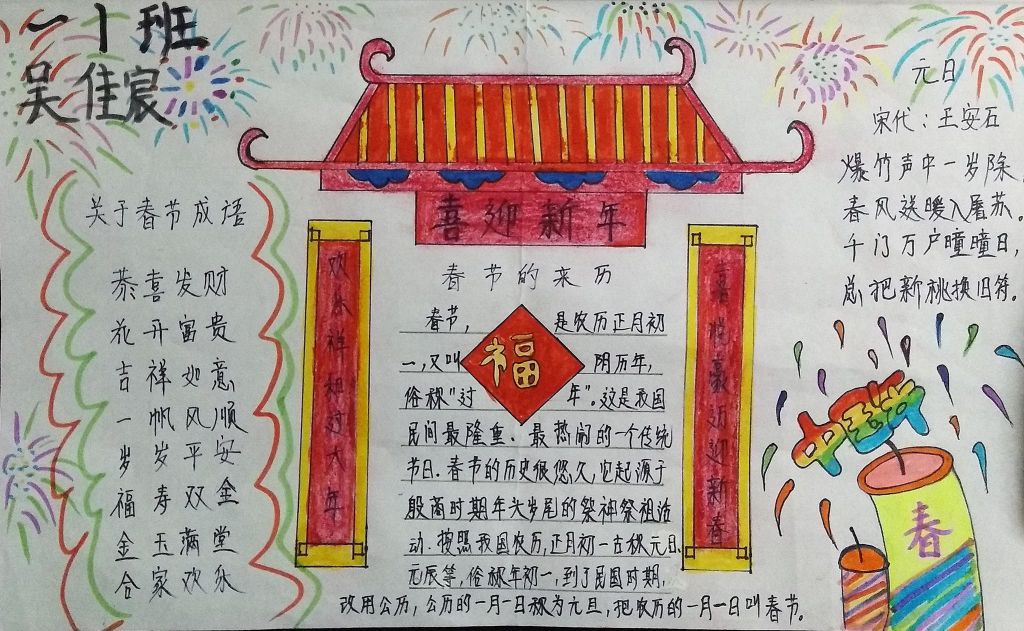 一1班
吴佳宸
关于春节成语
恭喜发财
花开富贵
吉祥如意
一帆风顺
岁岁平安
福寿双全
金玉满堂
合家欢乐
喜迎新年
欢春祥和过大年
喜悦豪迈迎新春
春节的来历
春节，是农历正月初
一，又叫阴历年，
俗称“过年”。这是我国
民间最隆重、最热闹的一个传统
节日。春节的历史很悠久，它起源于
殷商时期年头岁尾的祭神祭祖活
动。按照我国农历，正月初一古称元日、
元辰等，俗称年初一，到了民国时期，
改用公历，公历的一月一日称为元旦，把农历的一月一日叫春节。
福
元日
宋代：王安石
爆竹声中一岁除，
春风送暖入屠苏。
千门万户曈曈日，
总把新桃换旧符。
春